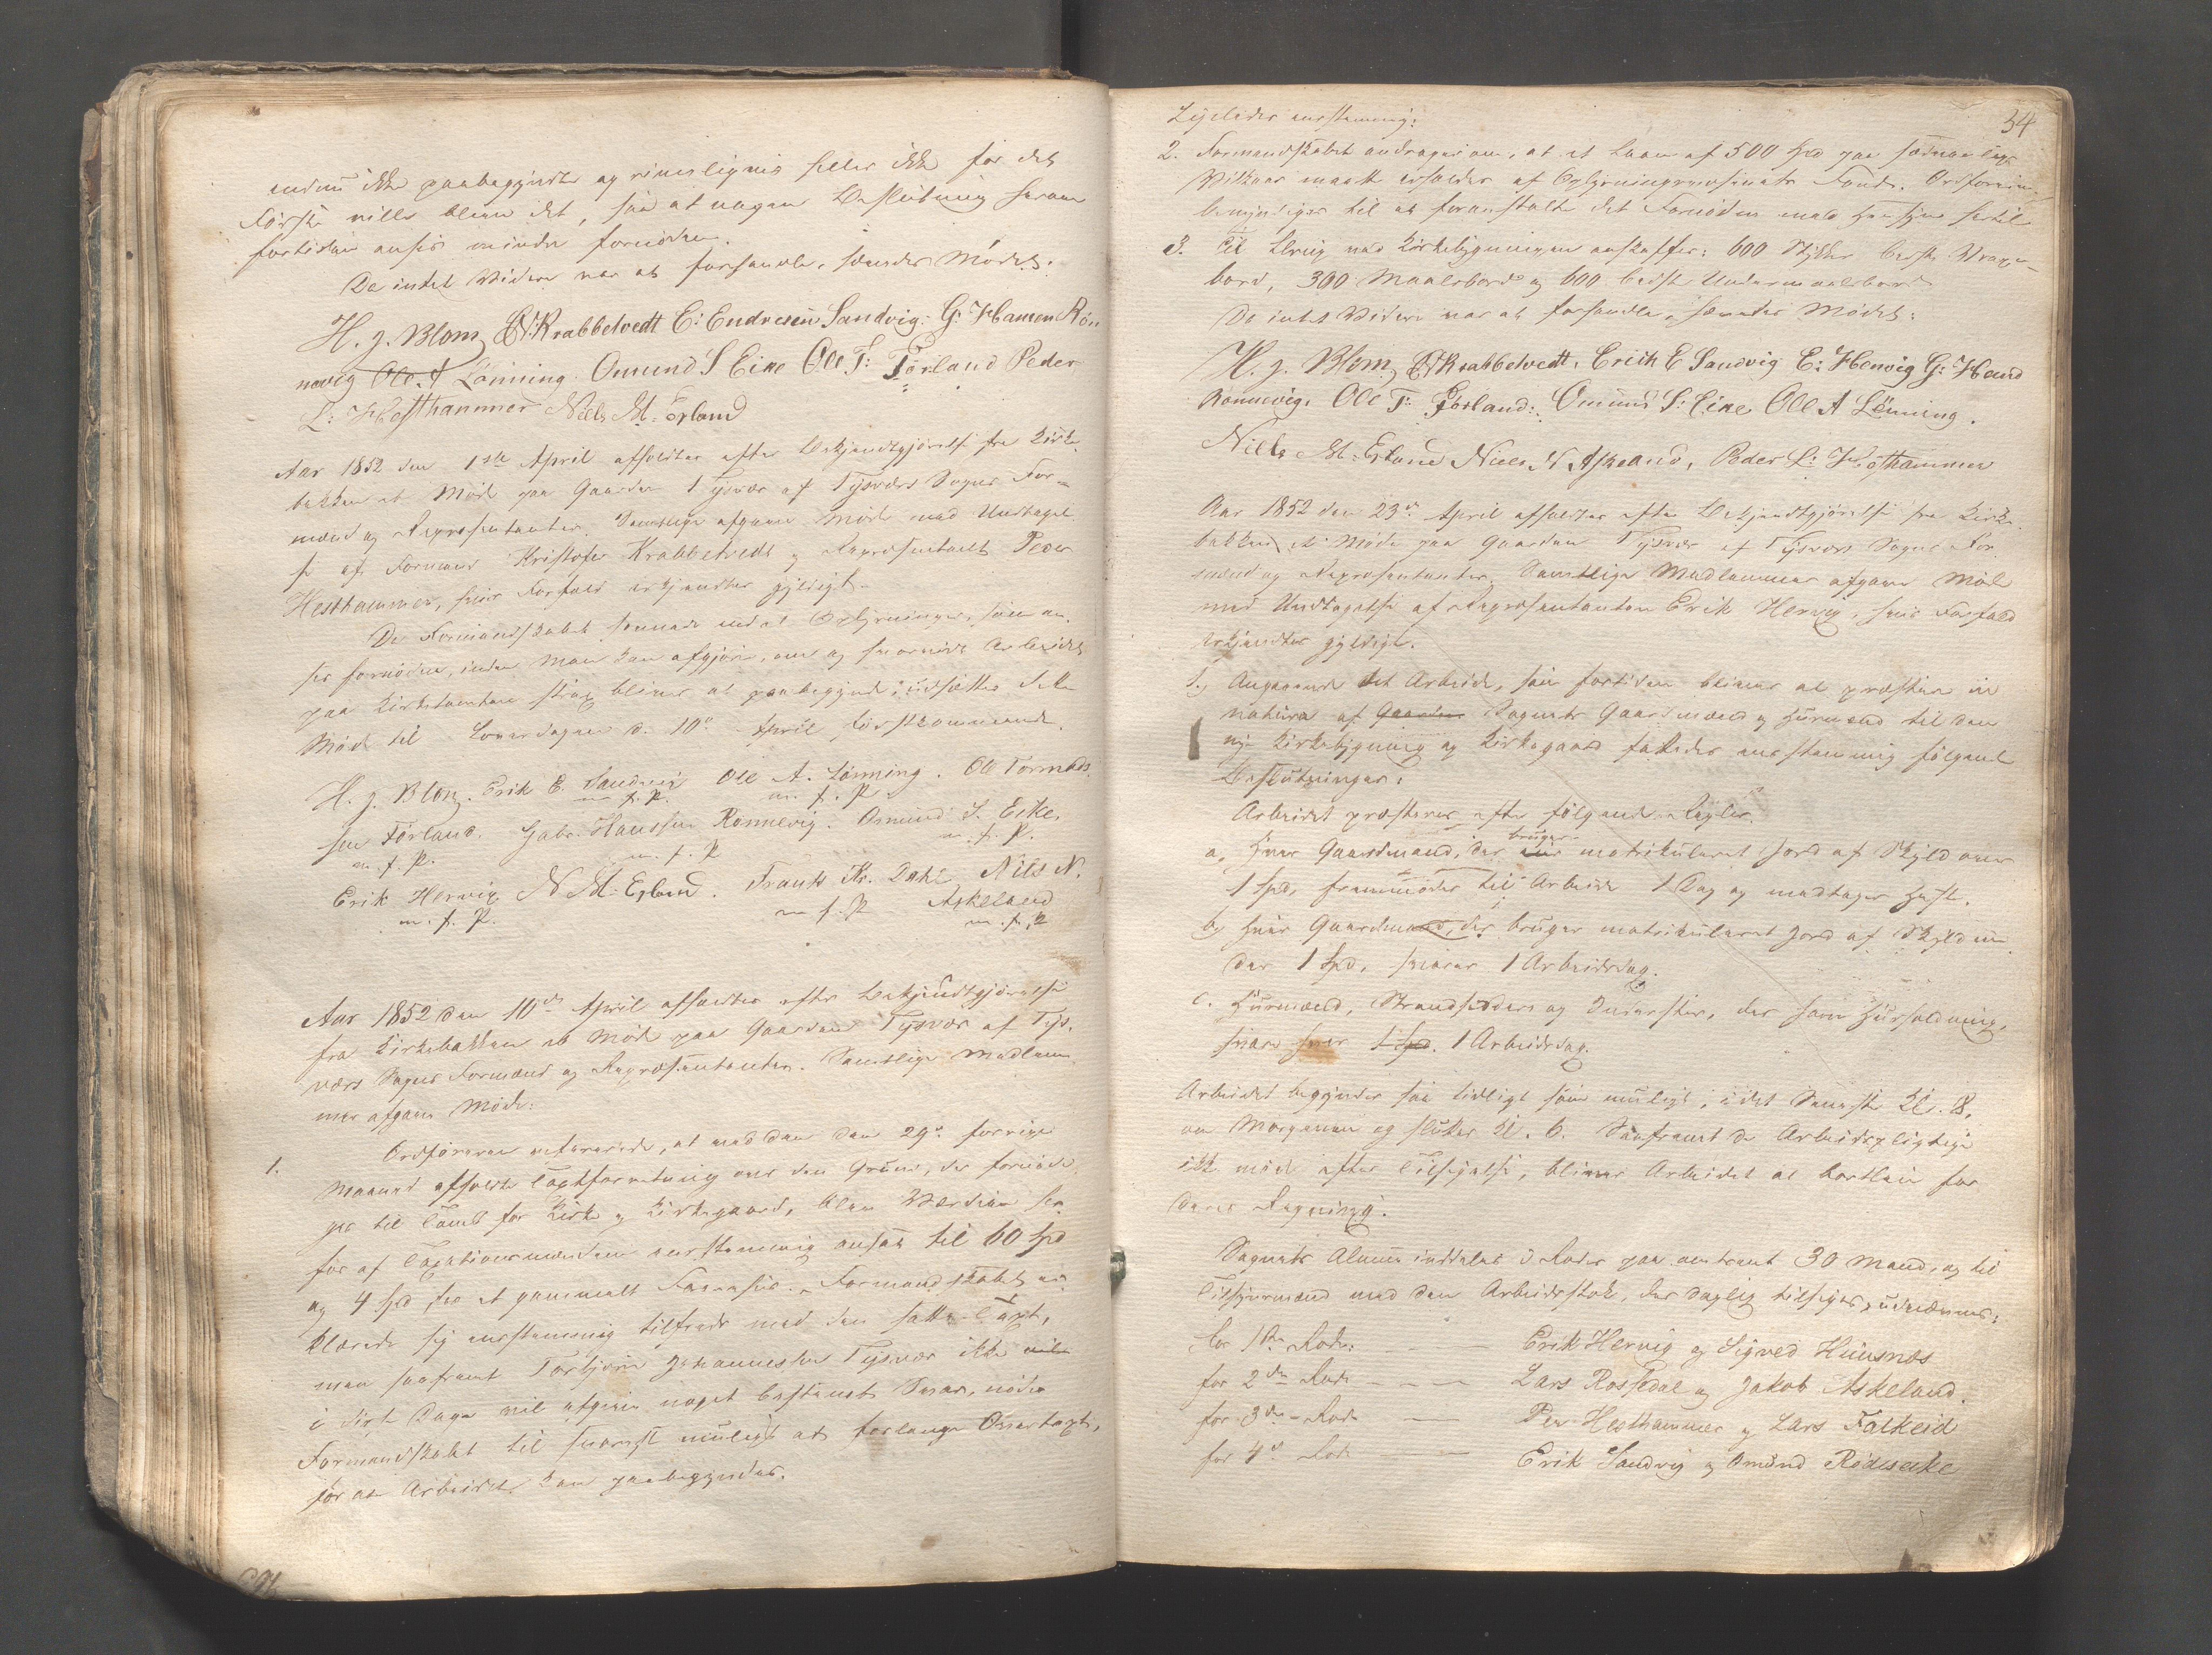 endnu ikke paabegyndt og rimeligvis heller ikke for det
Første ville blive det, saa at nogen Beslutning herom
fortiden ansees mindre fornöden.
Da intet Videre var at forhandle, hævedes Mödet.
H. J. Blom, Krabbetvedt E: Endresen Sandvig: G: Hansen Rön
nevig Ole A Lönning. Omund S Eike Ole T: Førland Peder
L: Hesthammer Niels M. Erland
Aar 1852 den 1ste April afholdtes efter Bekjendtgjörelse fra Kirke-
bakken et Möde paa Gaarden Tysvær af Tysværs Sogns For-
mænd og Repræsentanter. Samtlige afgave Möde med Undtagel-
se af Formand Kristofer Krabbetvedt og Repræsentant Peder
Hesthammer, hvis Forfald erkjendtes gyldigt.
Da Formandskabet savnede endel Oplysninger, som an-
sees fornödne, inden man kan afgjöre, om og hvorvidt Arbeidet
paa Kirketomten strax bliver at paabegynde, udsættes dette
Möde til Löverdagen d. 10de April förstkommende.
H. J. Blom. Erik E. Sandvig Ole A. Lönning. Ole Tormods-
m. f. P. m. f. P.
sen Förland. Gabr. Hanssen Rönnevig. Omund S. Eike.
m. f. P. m. f. P. m. f. P.
Erik Hervig N M. Erland. Frants Kr. Dahl Nils N.
m. f. P. m. f. P Askeland
m. f. P
Aar 1852 den 10de April afholdtes efter Bekjendtgjörelse
fra Kirkebakken et Möde paa Gaarden Tysvær af Tys-
værs Sogns Formænd og Repræsentanter. Samtlige Medlem-
mer afgave Möde.
1. Ordföreren refererede, at ved den den 29de forrige
Maaned afholdte Taxtforretning over den Grund, der fornöde-
ges til Tomt for Kirke og Kirkegaard, blev Værdien her-
for af Taxationsmændene eenstemmig ansat til 60 Spd
og 4 Spd for et gammelt . Formandskabet er-
klærede sig eenstemmig tilfreds med den satte Taxt,
men saafremt Torbjörn Johannesen Tysvær ikke
i disse Dage vil afgive noget bestemt Svar, nödes
Formandskabet til snarest muligt at forlange Overtaxt,
for at Arbeidet kan paabegyndes.
34
Ligeledes eenstemmig:
2. Formandskabet andrager om, at et Laan af 500 Spd paa sædvanlige
Vilkaar maatte erholdes af Oplysningsvæsenets Fond. Ordföreren
bemyndiges til at foranstalte det Fornödne med Hensyn hertil
3. Til Brug ved Kirkebygningen anskaffes: 600 Stykker bedste Vrag-
bord, 300 Maalsbord og 600 bedste Undermaalsbord
Da intet Videre var at forhandle, hævedes Mödet:
H. J. Blom, Krabbetvedt. Erich E Sandvig E: Hervig G: Hand
Rönnevig. Ole T: Førland: Omund S: Eike Ole A Lönning.
Niels M. Erland Niels N Askeland, Peder L: Hesthammer
Aar 1852 den 23de April afholdtes efter Bekjendtgjörelse fra Kirke-
bakken et Möde paa Gaarden Tysvær af Tysværs Sogns For-
mænd og Repræsentanter. Samtlige Medlemmer afgave Möde
med Undtagelse af Repræsentanten Erik Hervig, hvis Forfald
erkjendtes gyldigt.
1, Angaaende det Arbeide, som fortiden bliver at præstere in
natura af Gaarden Sognets Gaardmænd og Huusmænd til den
nye Kirkebygning og Kirkegaard fattedes eenstemmig fölgende
Beslutninger:
Arbeidet præsteres efter fölgende Regler.
a, Hver Gaardmand, der bruger matrikuleret Jord af Skyld over
1 Spd, fremmöder til Arbeide 1 Dag og medtager Hest.
b, Hver Gaardmand, der bruger matrikuleret Jord af Skyld un-
der 1 Spd, svarer 1 Arbeidsdag.
c. Huusmænd, Strandsiddere og Inderster, der have Huusholdning,
svare hver 1 Spd. 1 Arbeidsdag.
Arbeidet begynder saa tidligt som muligt, i det Seneste Kl. 8.
om Morgenen og slutter Kl. 6. Saafremt de Arbeidspligtige
ikke möde efter Tilsigelse, bliver Arbeidet at bortleie for
deres Regning.
Sognets Almue inddeles i Roder paa omtrent 30 Mand, og til
Tilsynsmænd med den Arbeidsstok, der daglig tilsiges, udnævnes:
for 1ste Rode: - - - Erik Hervig og Sigved Huusnæs
for 2den Rode - - - Lars Rossedal og Jakob Askeland.
for 3die Rode - - Per Hesthammer og Lars Falkeid
for 4de Rode - - Erik Sandvig og Omund Rödseike